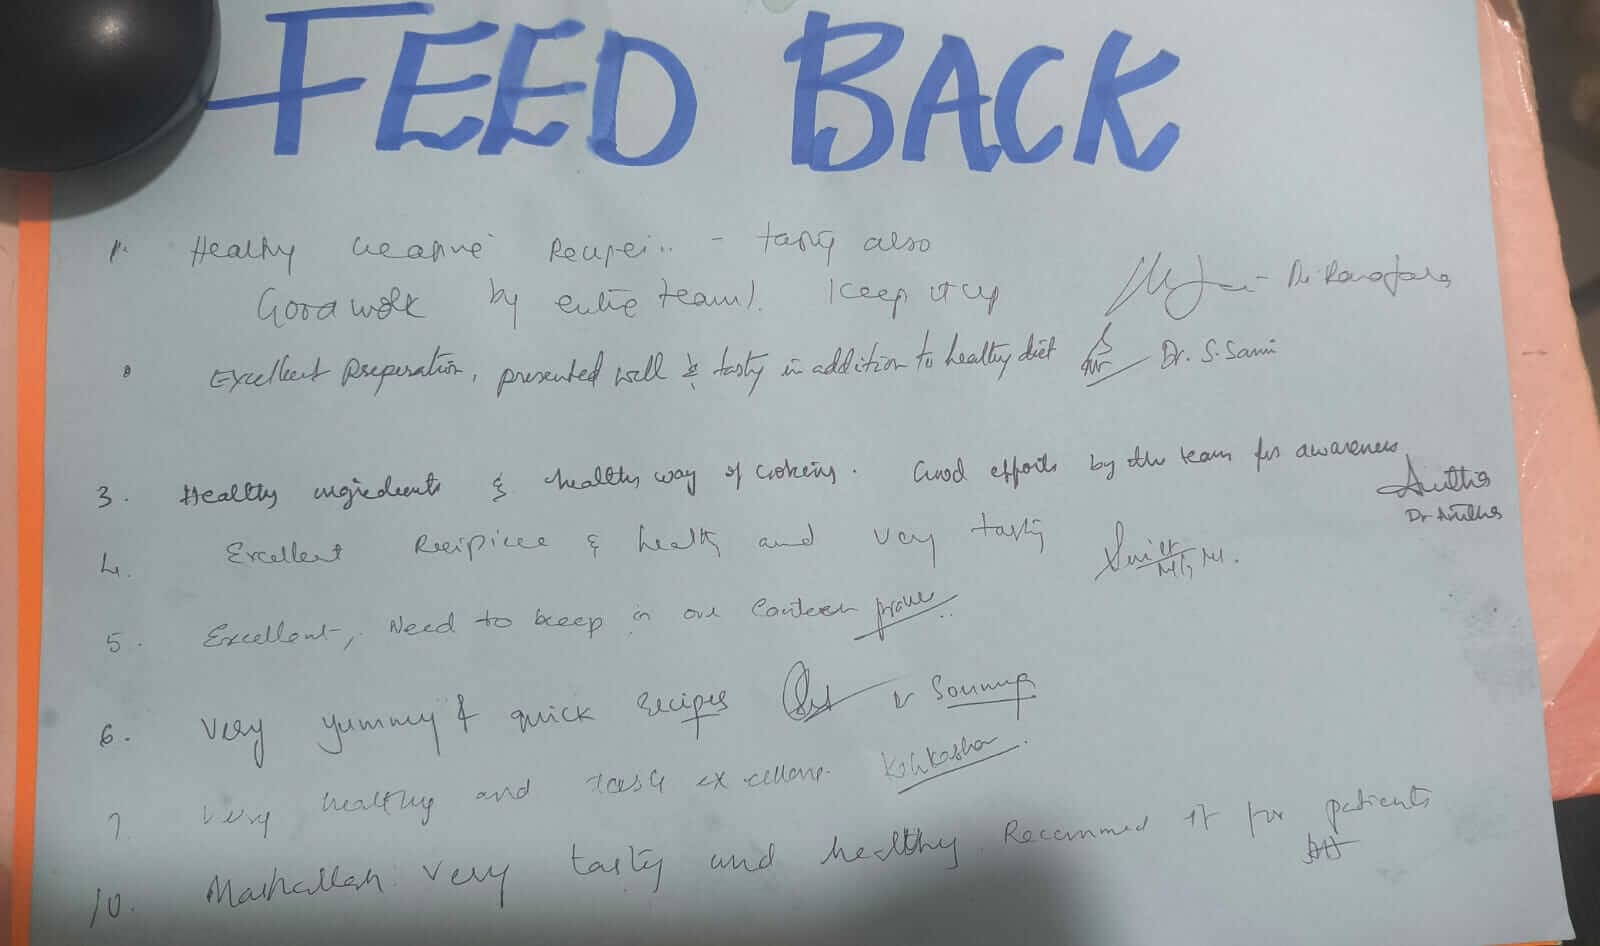 FEED BACK
1. Healthy creative Recipei.. - tasty also
Good work by entire team!. Keep it up
Excellent Preperation, presented well & tasty in addition to healthy diet Dr. S. Sami
3. Healthy ingredients & healthy way of cooking. Good efforts by the team for awareness
Dr Anitha
4. Excellent & healty and very tasty
5. Excellent, Need to keep in our Canteen
6. Very yummy & quick recipes Dr Soumya
7. Very healthy and taste excellent. Kehkashan.
10. Mashallah very tasty and healthy Recommed it for patients